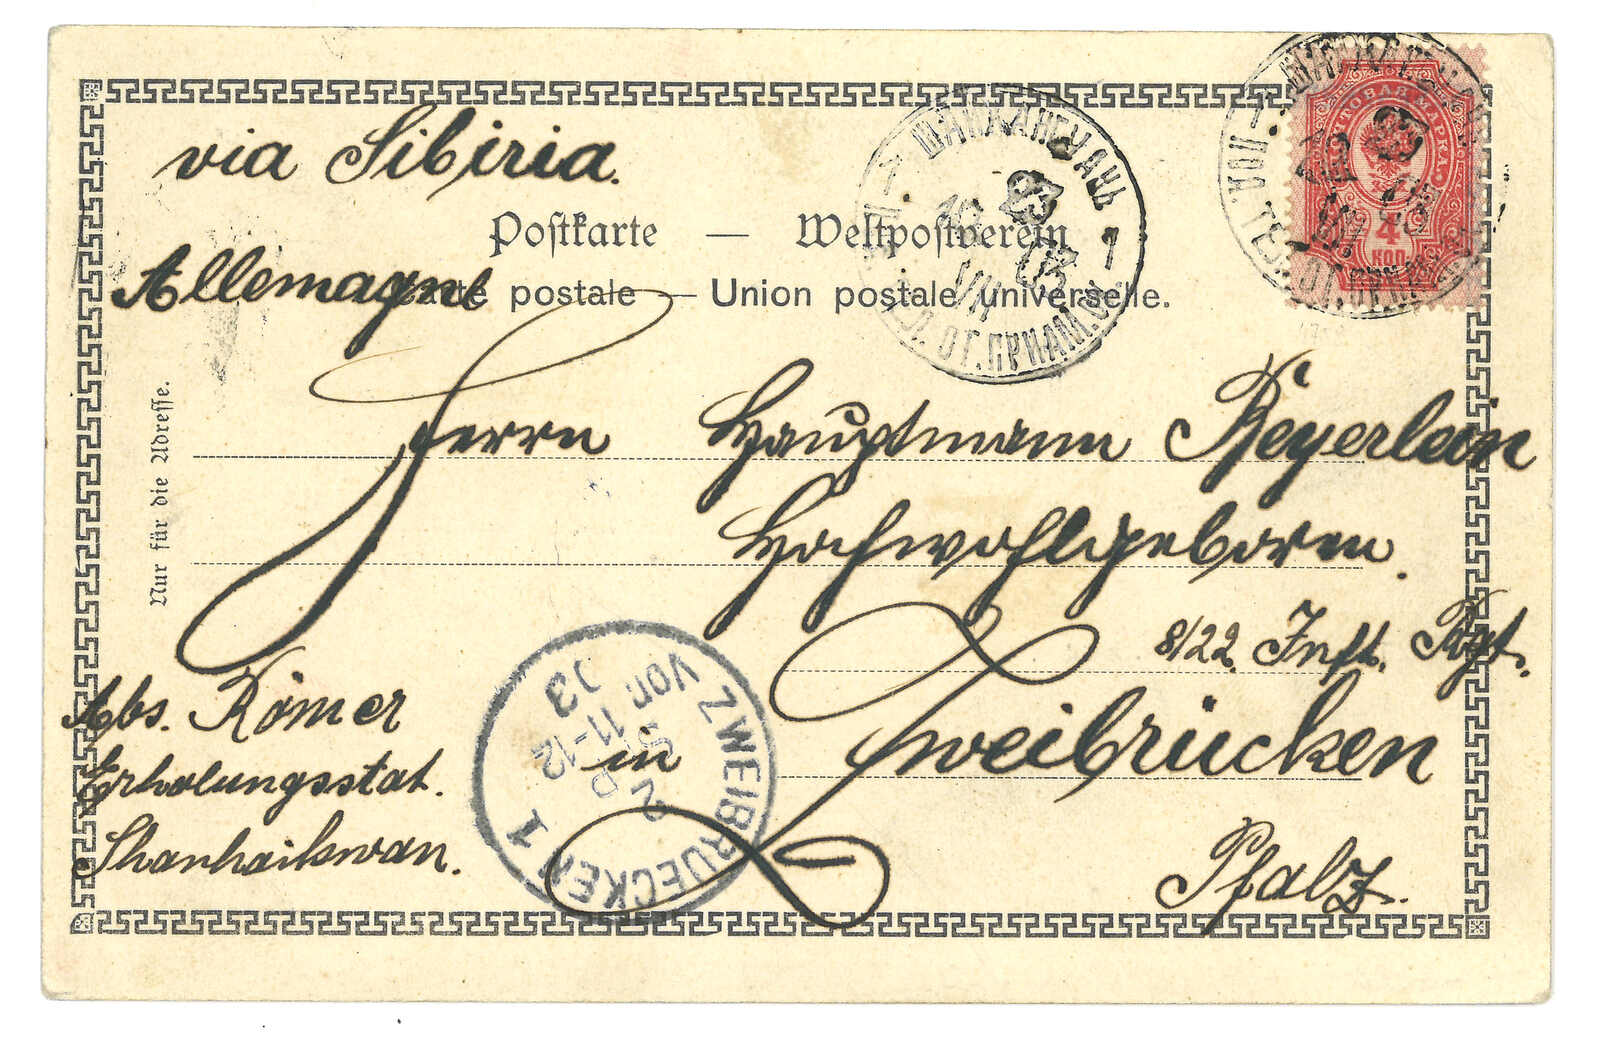 via Sibiria.
Postkarte — Weltpostverein
Allemagne
Carte postale — Union postale universelle.
ПОЧТОВАЯ МАРКА
4
КОП.
1903
Nur für die Adresse.
Herrn Hauptmann Beyerlein
Hochwohlgeboren.
8/22. Inft. Rgt.
in Zweibrücken
Pfalz.
Abs. Römer
Erholungsstat.
Shanhaikwan.
ZWEIBRUECKEN 1
2 SEP
Vor 11-12
03